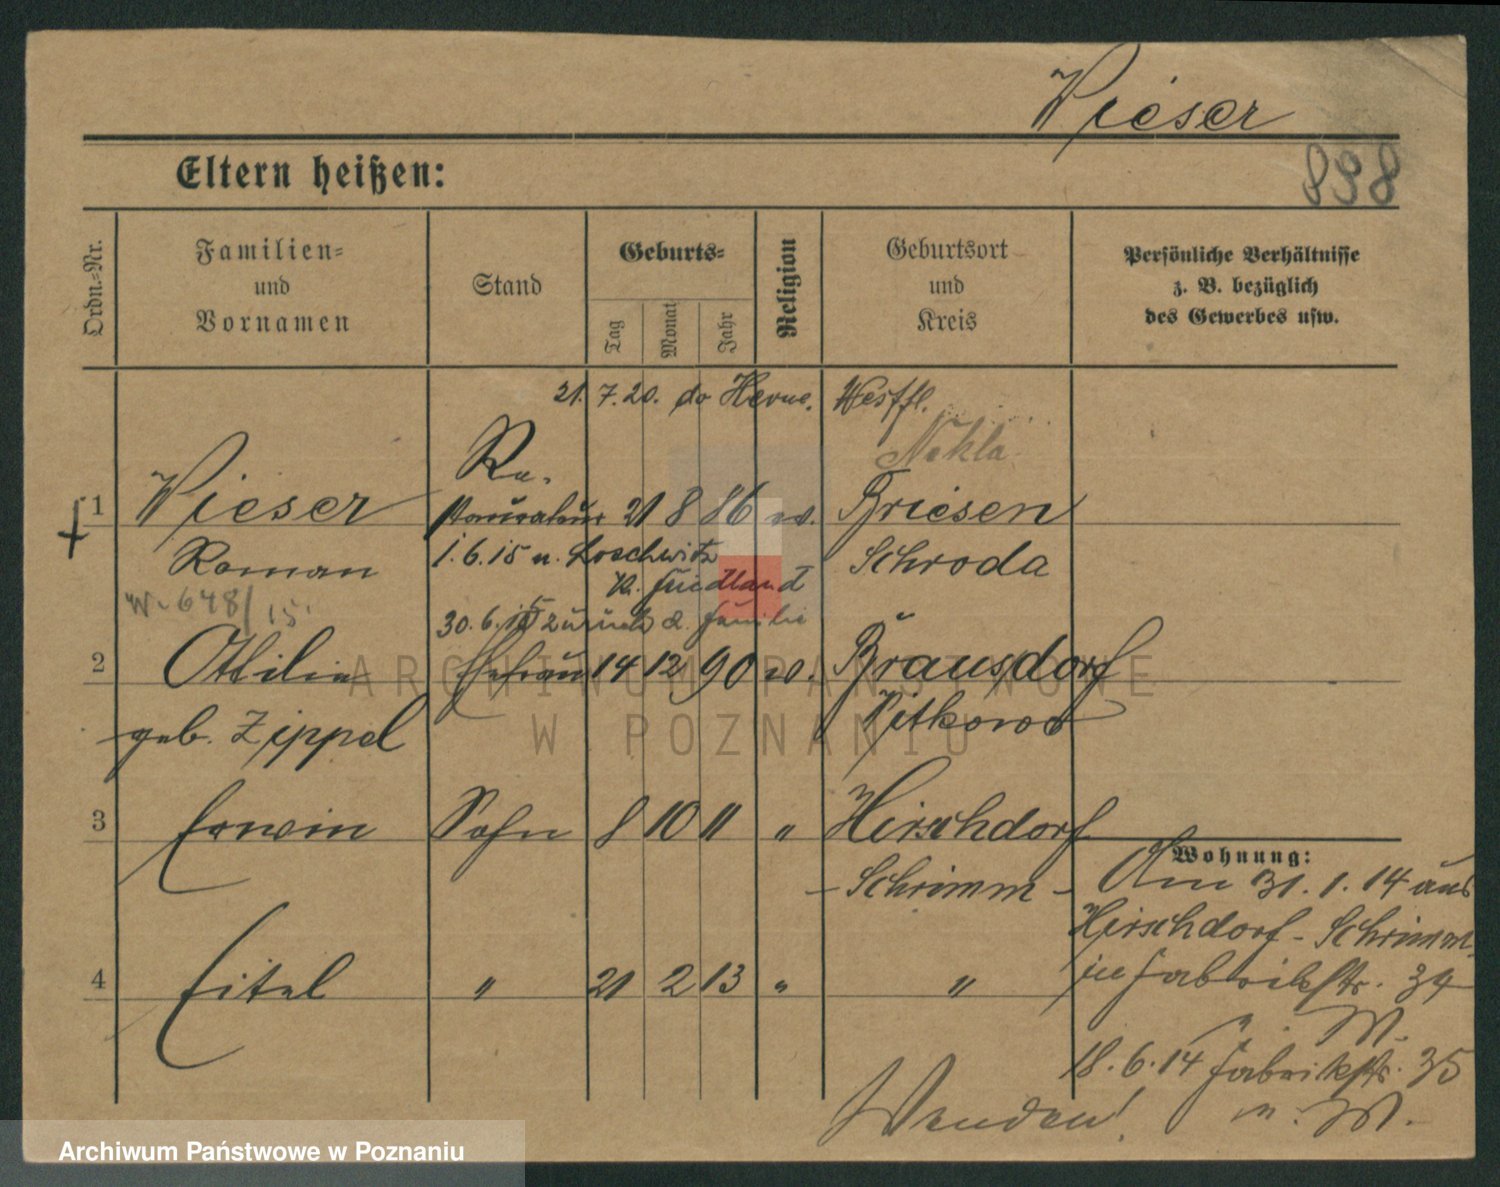 Wieser
898
Eltern heißen:
Ordn.-Nr.
Familien-
und
Vornamen
Stand
Geburts-
Tag
Monat
Jahr
Religion
Geburtsort
und
Kreis
Persönliche Verhältnisse
z. B. bezüglich
des Gewerbes usw.
21. 7. 20. do Herne. Westfl.
Nekla
Re-
1 Wieser staurateur 21 8 86 ev. Briesen
Roman 1. 6. 15 n. Loschwitz Schroda
K. Friedland
W. 648/15
30. 6. 15 zurück z. Familie
2 Ottilie Ehefrau 14 12 90 ev. Brausdorf
geb. Zippel Witkowo
3 Erwin Sohn 8 10 11 " Hirschdorf
- Schrimm -
4 Eitel " 21 2 13 " "
Wohnung:
Am 31. 1. 14 aus
Hirschdorf - Schrimm
in Fabrikstr. 34
z. M.
18. 6. 14 Fabrikstr. 35
Wenden! M.
ARCHIWUM PAŃSTWOWE
W POZNANIU
Archiwum Państwowe w Poznaniu